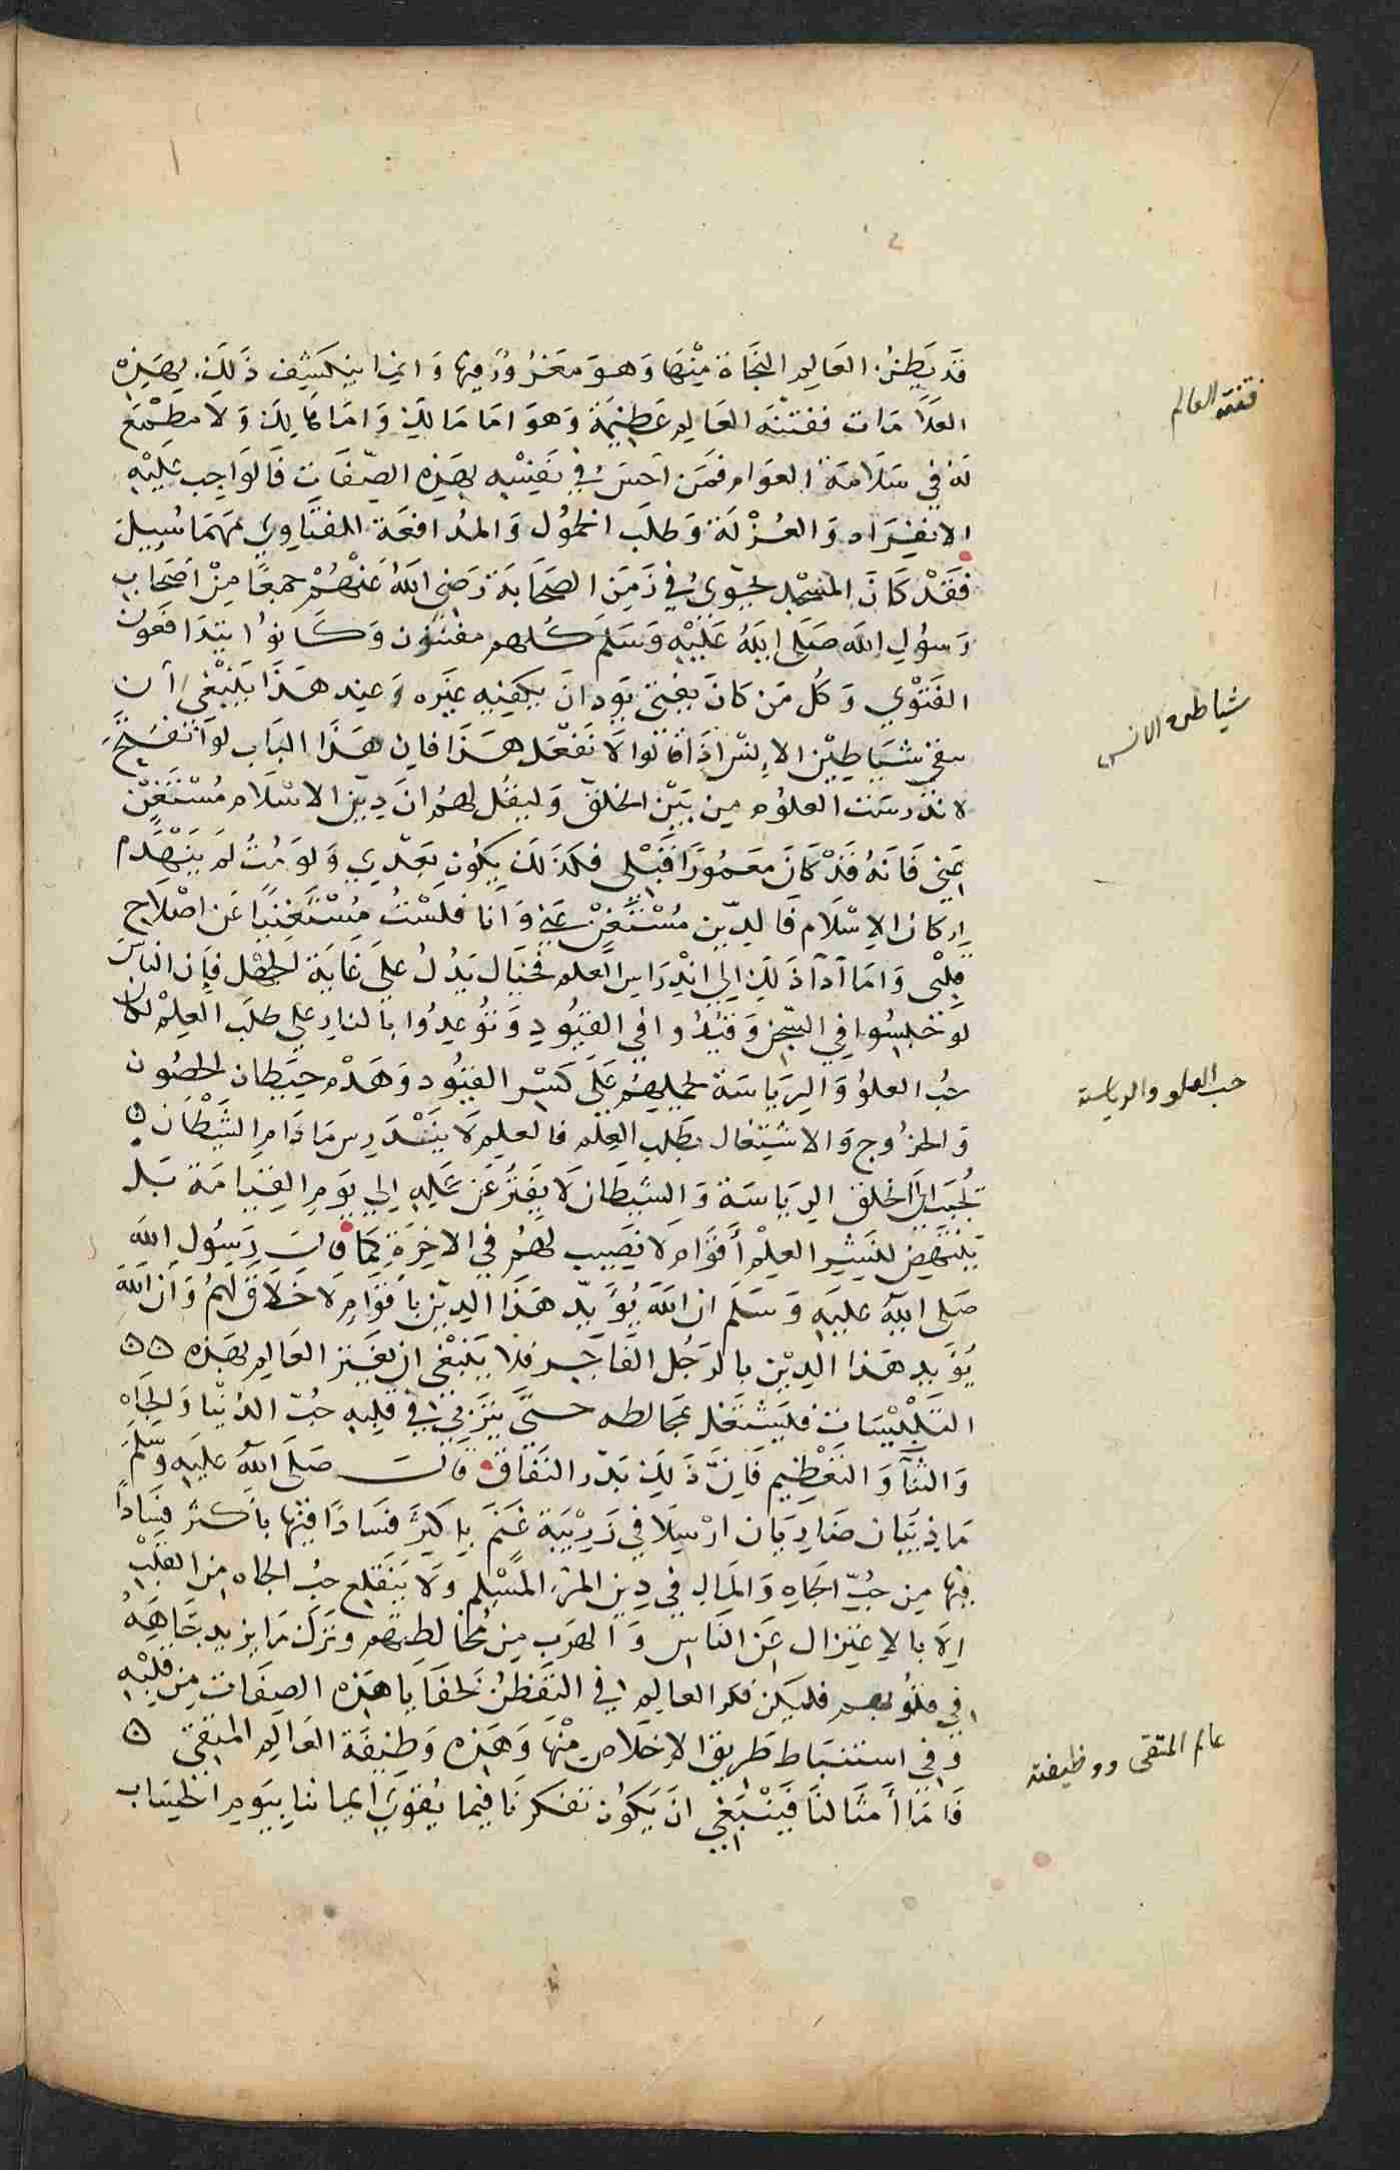 قد يظن العالم النجاة منها وهو مغرور فيها وانما ينكشف ذلك بهذه
العلامات ففتنة العالم عظيمة وهو اما مالك واما هالك ولا مطمع
له في سلامة العوام فمن احس في نفسه بهذه الصفات فالواجب عليه
الانفراد والعزلة وطلب الخمول والمدافعة للفتاوي مهما سئل
فقد كان المسجد يحتوي في زمن الصحابة رضي الله عنهم جمعًا من اصحاب
رسول الله صلى الله عليه وسلم كلهم مفتون وكانوا يتدافعون
الفتوي وكل من كان يفتي يود ان يكفيه غيره وعند هذا ينبغي ان
يتقي شياطين الانس اذا قالوا لا تفعل هذا فان هذا الباب لو انفتح
لاندرست العلوم من بين الخلق وليقل لهم ان دين الاسلام مستغن
عني فانه قد كان معمورًا قبلي فكذلك يكون بعدي ولو مُتُّ لم ينهدم
اركان الاسلام فالدين مستغن عني وانا فلست مستغنيًا عن اصلاح
قلبي واما آدآ ذلك الى اندراس العلم فخيال يدل على غاية الجهل فان الناس
لو حبسوا في السجن وقيدوا في القيود وتوعدوا بالنار على طلب العلم لكان
حب العلو والرياسة يحملهم على كسر القيود وهدم حيطان الحصون
والخروج والاشتغال بطلب العلم فالعلم لا يندرس مادام الشيطان ٥
يحبب الى الخلق الرياسة والشيطان لا يفتر عن عمله الى يوم القيامة بل
ينتهض لنشر العلم أقوام لا نصيب لهم في الاخرة كما قال رسول الله
صلى الله عليه وسلم ان الله يؤيد هذا الدين باقوام لا خلاق لهم وان الله
يؤيد هذا الدين بالرجل الفاجر فلا ينبغي ان يغتر العالم بهذه ٥٥
التلبيسات فليشتغل بمخالطه حتى يتربي في قلبه حب الدنيا والجاه
والثنآ والتعظيم فان ذلك بذر النفاق قال صلى الله عليه وسلم
ما ذئبان ضاريان ارسلا في زريبة غنم باكثر فسادًا فيها بأكثر فسادًا
فيها من حب الجاه والمال في دين المرء المسلم ولا ينقلع حب الجاه من القلب
الا بالاعتزال عن الناس والهرب من مخالطتهم وترك ما يزيد جاهه
في قلوبهم فليكن فكر العالم في التفطن لخفايا هذه الصفات من قلبه
وفي استنباط طريق الاخلاص منها وهذه وظيفة العالم المتقي ٥
فاما أمثالنا فينبغي ان يكون تفكرنا فيما يقوي ايماننا بيوم الحساب
فتنة العالم
شياطين الانس
حب العلو والرياسة
عالم المتقى ووظيفته